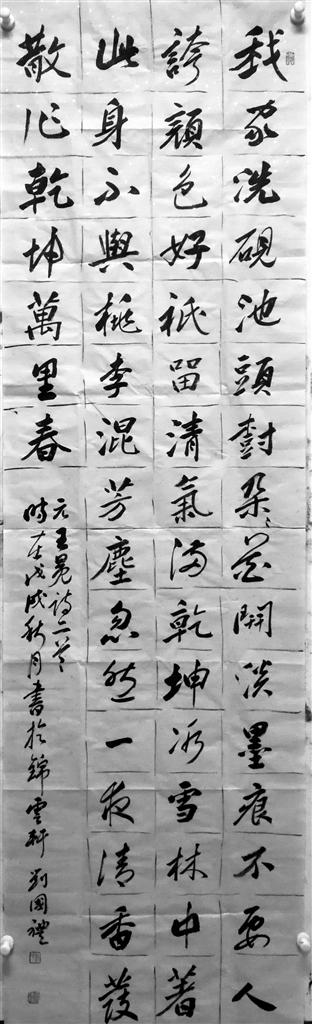 我家洗硯池頭樹朵〻花開淡墨痕不要人
誇顏色好祇留清氣滿乾坤冰雪林中著
此身不與桃李混芳塵忽然一夜清香發
散作乾坤萬里春
元王冕詩二首
時在戊戌秋月書於錦雲軒 劉國禮